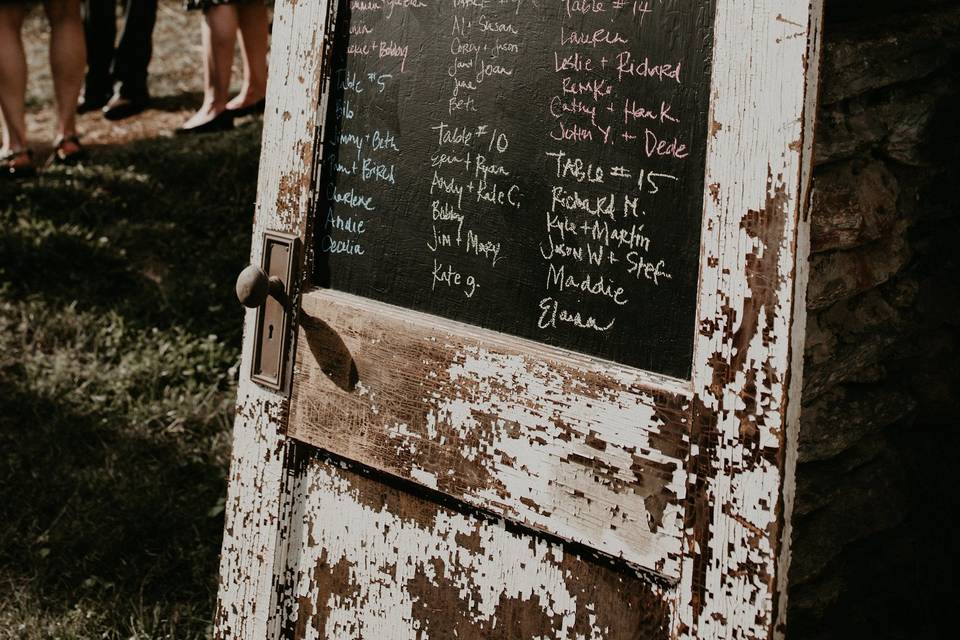 + Bobby
Table #5
Bob
Jimmy + Beth
Charlene
Andie
Cecelia
Al + Susan
Corey + Jason
Joan
June
Beth
Table #10
Erin + Ryan
Andy + Kate C.
Bobby
Jim + Mary
Kate g.
Table #14
Lauren
Leslie + Richard
Cathy + Hank
John Y. + Dede
TABLE #15
Richard M.
Kyle + Martin
Jason W + Stef.
Maddie